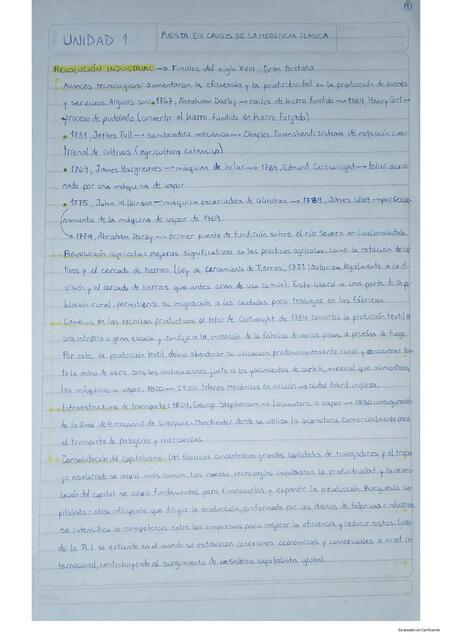 1
UNIDAD 1
PUESTA EN CRISIS DE LA HERENCIA CLÁSICA
REVOLUCIÓN INDUSTRIAL → Finales del siglo XVIII, Gran Bretaña
Avances tecnológicos: aumentaron la eficiencia y la productividad en la producción de bienes
y servicios. Algunos son: 1767, Abraham Darby → raíles de hierro fundido → 1784, Henry Cort →
proceso de pudelado (convertir el hierro fundido en hierro forjado)
• 1731, Jethro Tull → sembradora mecánica → Charles Townshend: sistema de rotación cua-
trienal de cultivos (agricultura extensiva)
• 1764, James Hargreaves → máquina de hilar → 1784, Edmund Cartwright → telar accio-
nado por una máquina de vapor.
• 1775, John Wilkinson → máquina escariadora de cilindros → 1789, James Watt → perfecci-
onamiento de la máquina de vapor de 1769.
1779, Abraham Darby → primer puente de fundición sobre el río Severn en Coalbrookdale.
Revolución agrícola: mejoras significativas en las prácticas agrícolas, como la rotación de cul-
tivos y el cercado de tierras (Ley de Cercamiento de Tierras, 1771 (Autoriza legalmente a la di-
visión y el cercado de tierras que antes eran de uso común). Esto liberó a parte de la po-
blación rural, permitiendo su migración a las ciudades para trabajar en las fábricas.
Cambios en las técnicas productivas: el telar de Cartwright de 1784 convirtió la producción textil en
una industria a gran escala y condujo a la invención de la fábrica de varios pisos a prueba de fuego.
Por esto, la producción textil debió abandonar su ubicación predominantemente rural y concentrar tan-
to la mano de obra como las instalaciones junto a los yacimientos de carbón, material que alimentaba
las máquinas a vapor. 1820 → 2400 telares mecánicos en acción → ciudad fabril inglesa.
Infraestructura de transporte: 1804, George Stephenson → locomotora a vapor → 1830 inauguración
de la línea de ferrocarril de Liverpool-Manchester donde se utiliza la locomotora comercialmente para
el transporte de pasajeros y mercancías.
Consolidación del capitalismo: las fábricas concentraban grandes cantidades de trabajadores y el traba-
jo asalariado se volvió más común. Las nuevas tecnologías impulsaron la productividad y la acumu-
lación del capital se volvió fundamental para financiarlas y expandir la producción. Burguesía ca-
pitalista: clase influyente que dirigía la producción, conformada por los dueños de fábricas e industrias
se intensifica la competencia entre las empresas para mejorar la eficiencia y reducir costos. Cuan-
do la R.I se extiende en el mundo se establecen conexiones económicas y comerciales a nivel in-
ternacional, contribuyendo al surgimiento de un sistema capitalista global.
Escaneado con CamScanner